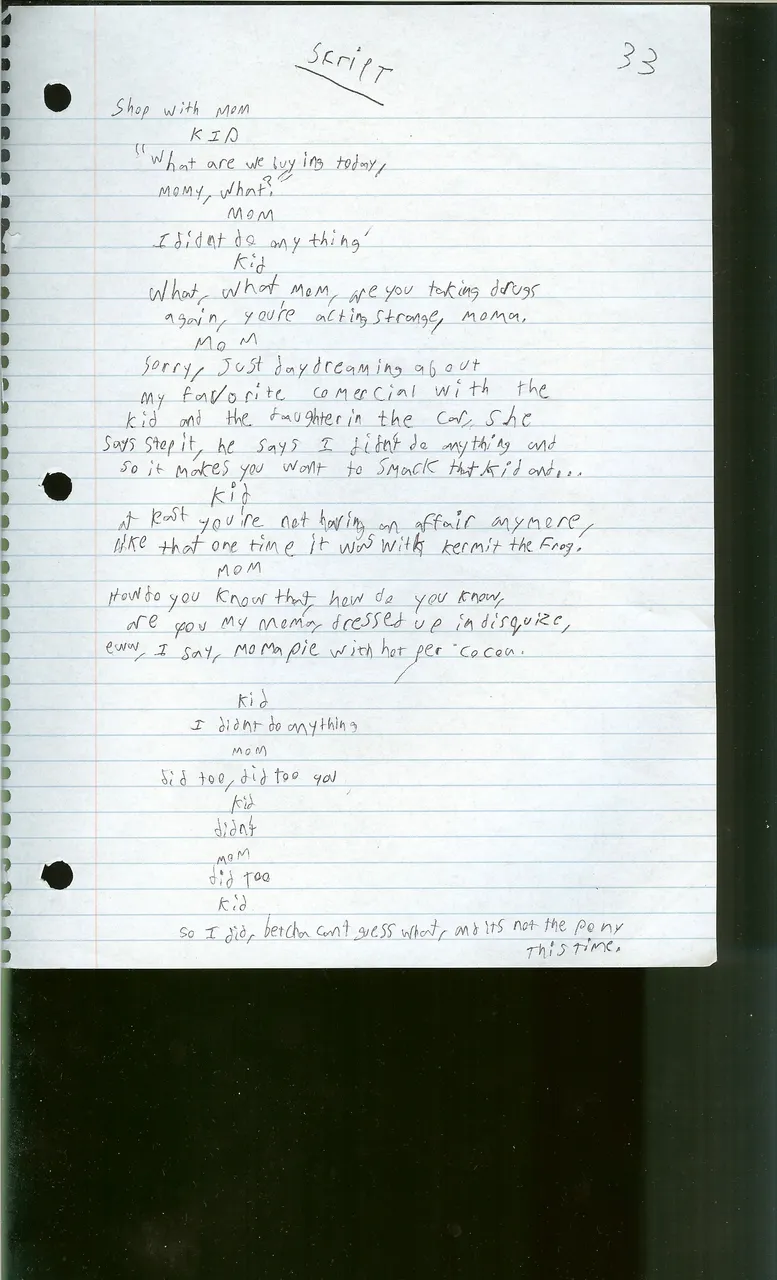 Script
33
Shop with mom
KID
"What are we buying today,
momy, what?"
MOM
I didnt do any thing'
Kid
What, what mom, are you taking drugs
again, you're acting strange, moma.
MOM
Sorry, Just day dreaming about
my favorite comercial with the
kid and the daughter in the car, she
says stop it, he says I didn't do anything and
so it makes you want to smack that kid and...
Kid
at least you're not having an affair anymore,
like that one time it was with kermit the Frog.
MOM
How do you know that, how do you know,
are you my moma, dressed up in disquize,
eww, I say, moma pie with hot per cocoa.
Kid
I didnt do anything
MOM
did too, did too you
Kid
didnt
MOM
did too
Kid
so I did, betcha can't guess what, and its not the pony
This time.